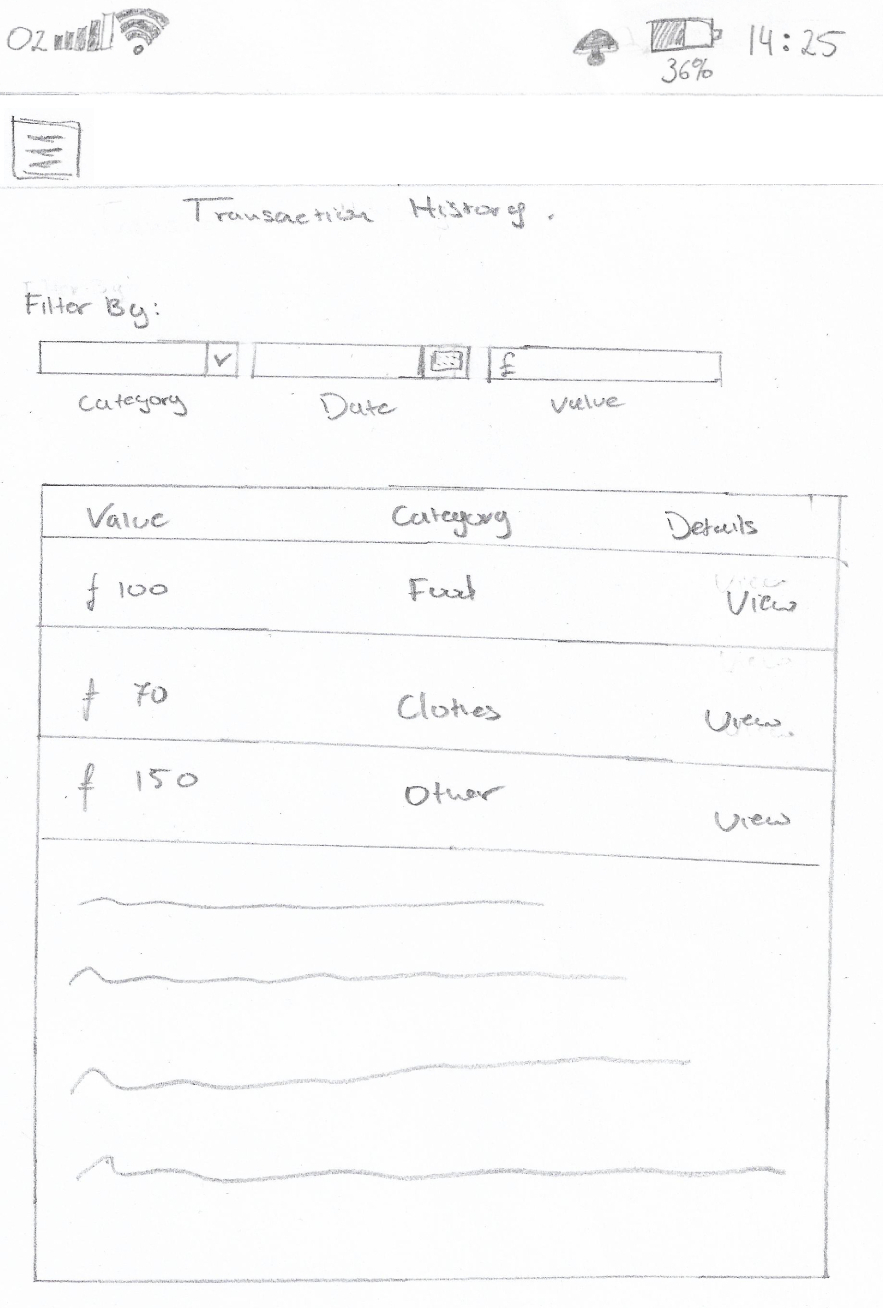 O2 14:25
36%
Transaction History.
Filter By:
£
Category Date Value
Value Category Details
£ 100 Food View
£ 70 Clothes View.
£ 150 Other View